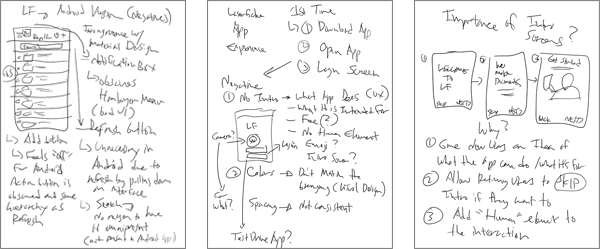 LF → Android Version (categories)
Incongruence w/
Material Design
notification Box
↳ obscures
Hamburger Menu
(bad UI)
Refresh button
↳ Unnecessary in
Android due to
refresh by pulling down
on interface
↳ Search
No reason to have
it omnipresent
↳ Add button
↳ Feels "off"
for Android
Action button is
obscured and same
hierarchy as
Refresh
Laserfiche
App
Experience
1st Time
↳ ① Download App
② Open App
③ Login Screen
Negative
① No Intro → What App Does (UX)
What it is Intended For
Free(?)
No Human Element
LF
Camera?
Login Emoji?
Intro Screen?
② Colors → Don't Match the
Branding (Visual Design)
Spacing → Not consistent
For what?
Test Drive App?
Importance of Intro
Screens?
①
WELCOME
TO
LF
SKIP NEXT
②
NEXT
③
Get Started
BACK NEXT
Why?
① Give New Users an Idea of
what the App can do/what it's for
② Allow Returning Users to SKIP
Intro if they want to
③ Add "Human" element to
the interaction